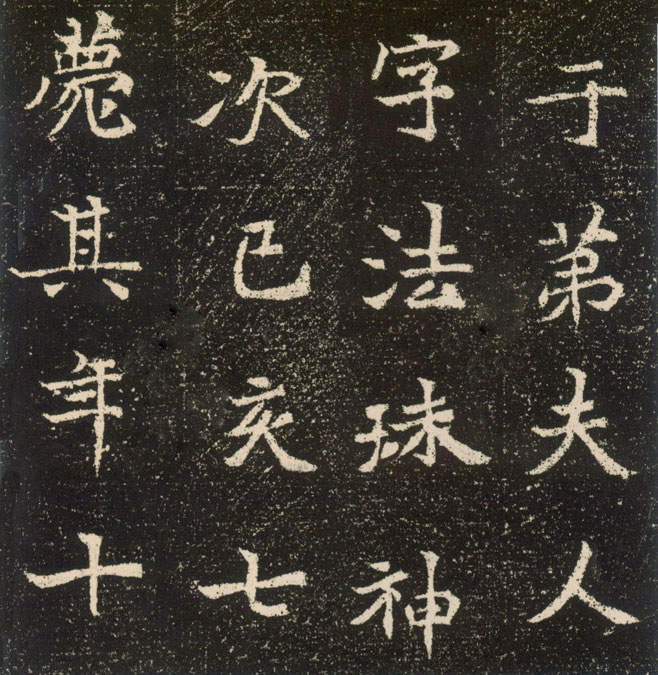 于苐夫人
字法珠神
次己亥七
薨其年十